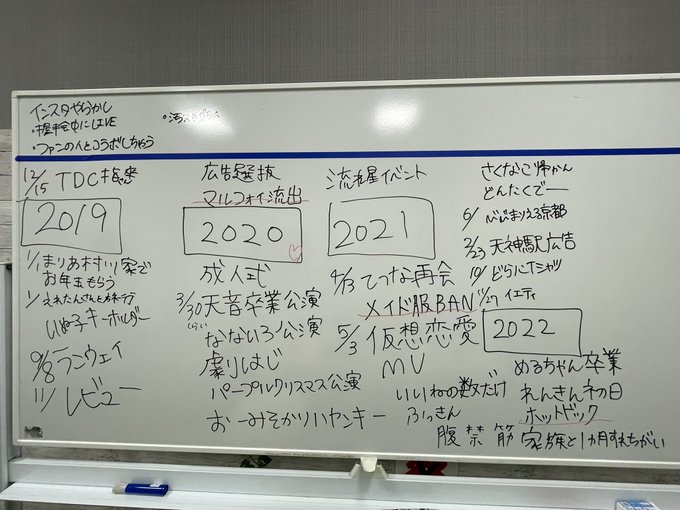 インスタやらかし
・握手会中にLIVE
・ファンの人とコラボしちゃう
12/15 TDC
2019
1/1 まりあ村川家で
お年玉もらう
いぬ子キーホルダー
9/8 ランウェイ
11/1 レビュー
広告選抜
マルフォイ流出
2020
成人式
3/30 天音卒業公演
なないろ公演
劇りはじ
パープルクリスマス公演
おーみそかりハヤンキー
流星イベント
2021
4/13 てつな再会
メイド服BAN
5/3 仮想恋愛
MV
いいねの数だけ
ふっきん
腹禁筋
さくなこ帰かん
どんたくでー
2/23 天神駅広告
どらにTシャツ
11/27 イエティ
2022
めるちゃん卒業
れんきんネの日
ホットドック
家族と1ヵ月すれちがい